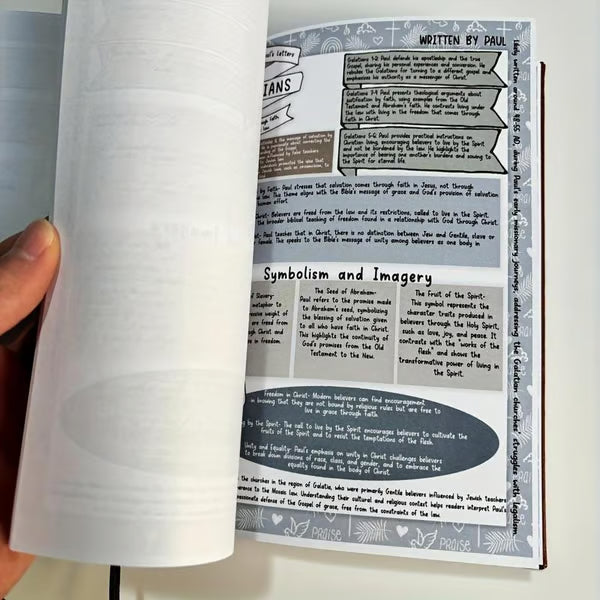 WRITTEN BY PAUL
Paul's letters
IANS
Galatians 1-2: Paul defends his apostleship and the true
Gospel, sharing his personal experiences and conversion. He
rebukes the Galatians for turning to a different gospel and
emphasizes his authority as a messenger of Christ.
Galatians 3-4: Paul presents theological arguments about
justification by faith, using examples from the Old
Testament and Abraham's faith. He contrasts living under
the law with living in the freedom that comes through
faith in Christ.
Galatians 5-6: Paul provides practical instructions on
Christian living, encouraging believers to live by the Spirit
and not be burdened by the law. He highlights the
importance of bearing one another's burdens and sowing to
the Spirit for eternal life.
by Faith- Paul stresses that salvation comes through faith in Jesus, not through
law. This theme aligns with the Bible's message of grace and God's provision of salvation
human effort.
Christ- Believers are freed from the law and its restrictions, called to live in the Spirit.
the broader biblical teaching of freedom found in a relationship with God through Christ.
Paul teaches that in Christ, there is no distinction between Jew and Gentile, slave or
female. This speaks to the Bible's message of unity among believers as one body in
Symbolism and Imagery
of Slavery-
metaphor to
oppressive weight of
are freed from
through Christ and
in freedom.
The Seed of Abraham-
Paul refers to the promise made
to Abraham's seed, symbolizing
the blessing of salvation given
to all who have faith in Christ.
This highlights the continuity of
God's promises from the Old
Testament to the New.
The Fruit of the Spirit-
This symbol represents the
character traits produced in
believers through the Holy Spirit,
such as love, joy, and peace. It
contrasts with the "works of the
flesh" and shows the
transformative power of living in
the Spirit.
Freedom in Christ- Modern believers can find encouragement
in knowing that they are not bound by religious rules but are free to
live in grace through faith.
by the Spirit- The call to live by the Spirit encourages believers to cultivate the
fruits of the Spirit and to resist the temptations of the flesh.
Unity and Equality- Paul's emphasis on unity in Christ challenges believers
to break down divisions of race, class, and gender, and to embrace the
equality found in the body of Christ.
the churches in the region of Galatia, who were primarily Gentile believers influenced by Jewish teachers
adherence to the Mosaic law. Understanding their cultural and religious context helps readers interpret Paul's
passionate defense of the Gospel of grace, free from the constraints of the law.
written around 48-55 AD, during Paul's early missionary journeys, addressing the Galatian churches' struggles with legalism.
PRAISE
PRAISE